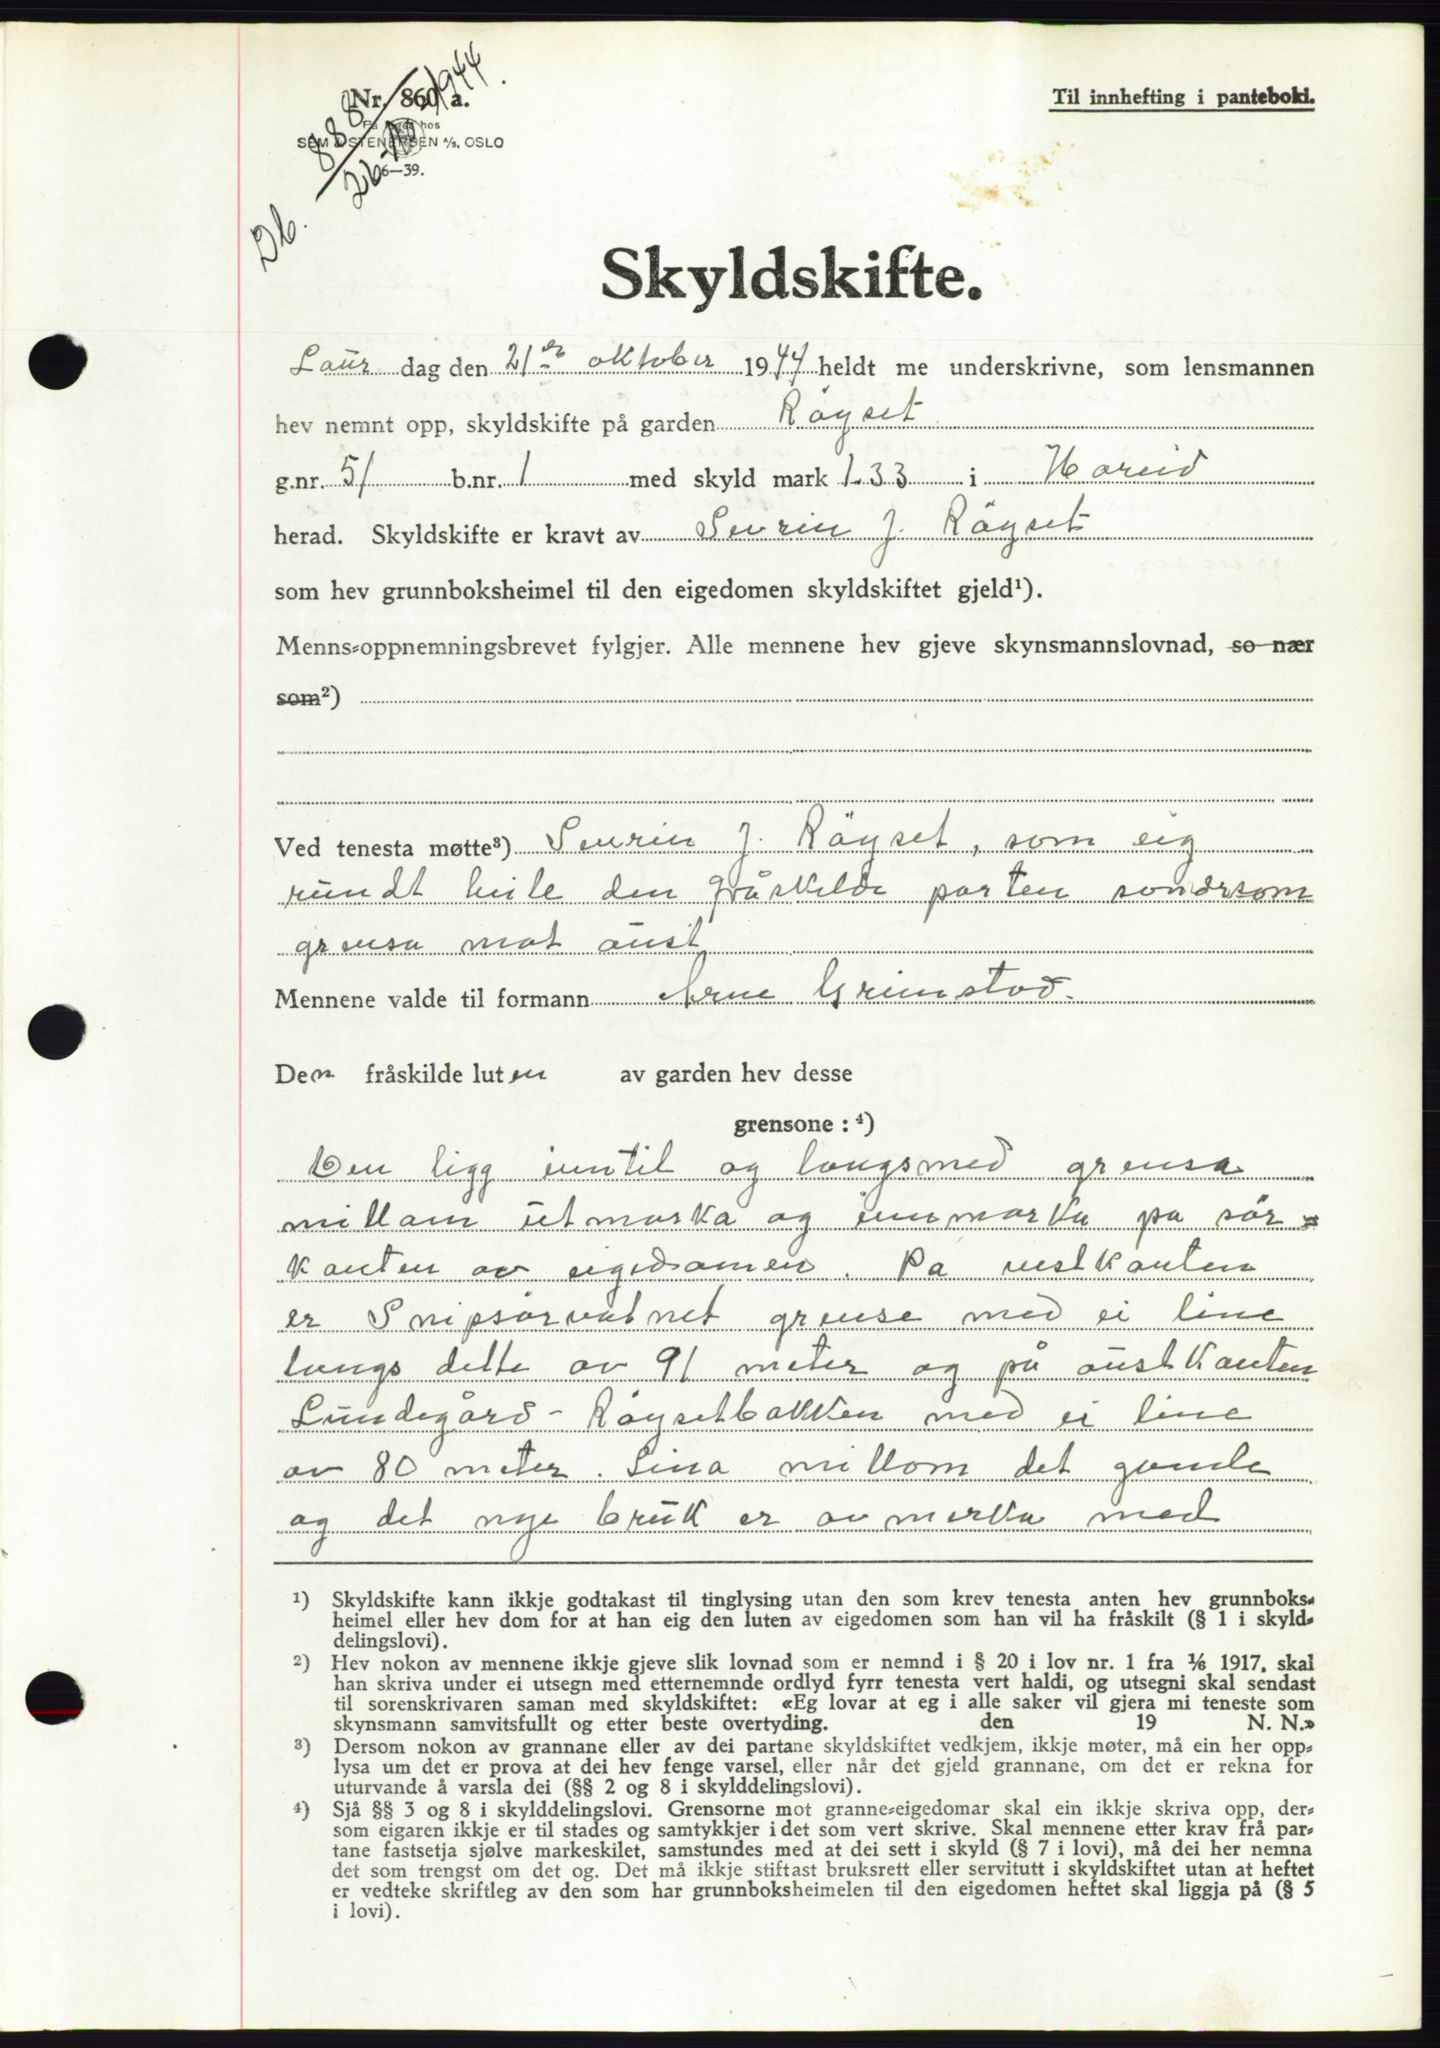 Nr. 860 a.
Til innhefting i panteboki.
På lager hos
SEM & STENERSEN A/S, OSLO
6—39.
Db. 888/26-10 1944.
Skyldskifte.
Laur dag den 21 er oktober 1944 heldt me underskrivne, som lensmannen
hev nemnt opp, skyldskifte på garden Röyset
g.nr. 51 b.nr. 1 med skyld mark 1.33 i Hareid
herad. Skyldskifte er kravt av Sevrin J. Röyset
som hev grunnboksheimel til den eigedomen skyldskiftet gjeld¹).
Menns-oppnemningsbrevet fylgjer. Alle mennene hev gjeve skynsmannslovnad, so nær
som²)
Ved tenesta møtte³) Sevrin J. Röyset, som eig
rundt heile den fråskilde parten somærsom
grensa mot aust
Mennene valde til formann Arne Grimstad.
Den fråskilde luten av garden hev desse
grensone : ⁴)
Den ligg inntil og langsmed grensa
millom utmarka og innmarka på sör-
kanten av eigedomen. På vestkanten
er Snipsörvatnet grense med ei line
langs dette av 91 meter og på austkanten
Lundegård - Röysetbakken med ei line
av 80 meter. Lina millom det gamle
og det nye bruk er avmerka med
¹) Skyldskifte kann ikkje godtakast til tinglysing utan den som krev tenesta anten hev grunnboks-
heimel eller hev dom for at han eig den luten av eigedomen som han vil ha fråskilt (§ 1 i skyld-
delingslovi).
²) Hev nokon av mennene ikkje gjeve slik lovnad som er nemnd i § 20 i lov nr. 1 fra 1/6 1917, skal
han skriva under ei utsegn med etternemnde ordlyd fyrr tenesta vert haldi, og utsegni skal sendast
til sorenskrivaren saman med skyldskiftet: «Eg lovar at eg i alle saker vil gjera mi teneste som
skynsmann samvitsfullt og etter beste overtyding. den 19 N. N.»
³) Dersom nokon av grannane eller av dei partane skyldskiftet vedkjem, ikkje møter, må ein her opp-
lysa um det er prova at dei hev fenge varsel, eller når det gjeld grannane, om det er rekna for
uturvande å varsla dei (§§ 2 og 8 i skylddelingslovi).
⁴) Sjå §§ 3 og 8 i skylddelingslovi. Grensorne mot granne-eigedomar skal ein ikkje skriva opp, der-
som eigaren ikkje er til stades og samtykkjer i det som vert skrive. Skal mennene etter krav frå par-
tane fastsetja sjølve markeskilet, samstundes med at dei sett i skyld (§ 7 i lovi), må dei her nemna
det som trengst om det og. Det må ikkje stiftast bruksrett eller servitutt i skyldskiftet utan at heftet
er vedteke skriftleg av den som har grunnboksheimelen til den eigedomen heftet skal liggja på (§ 5
i lovi).